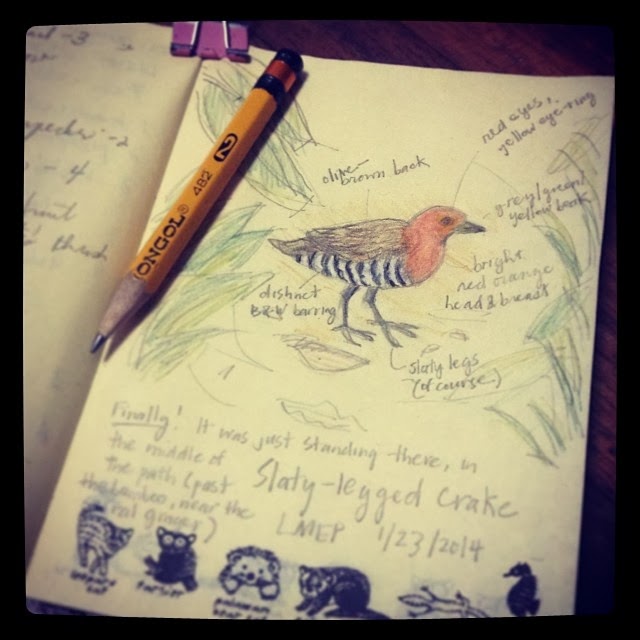 -3
-2
-4
ONGOL 482 2
red eyes,
yellow eye-ring
olive-
brown back
grey/green/
yellow beak
bright
red orange
head & breast
distinct
B&W barring
slaty legs
(of course)
Finally! It was just standing there, in
the middle of
the path (past
the bamboo, near the
ginger)
Slaty-legged Crake
LMEP 1/23/2014
tarsier